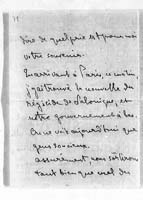 dire de quel prix est pour moi
votre souvenir.
En arrivant à Paris, ce matin,
j'ai trouvé la nouvelle du
régicide de Salonique, et
notre gouvernement à bas.
On ne voit aujourd'hui que
gens soucieux.
assurément nous sortirons
tant bien que mal du